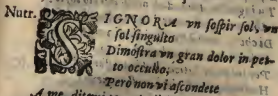 Nutr. SIGNORA vn sospir sol, vn
sol singulto
Dimostra vn gran dolor in pet-
to occulto;
Però non vi ascondete
A me,